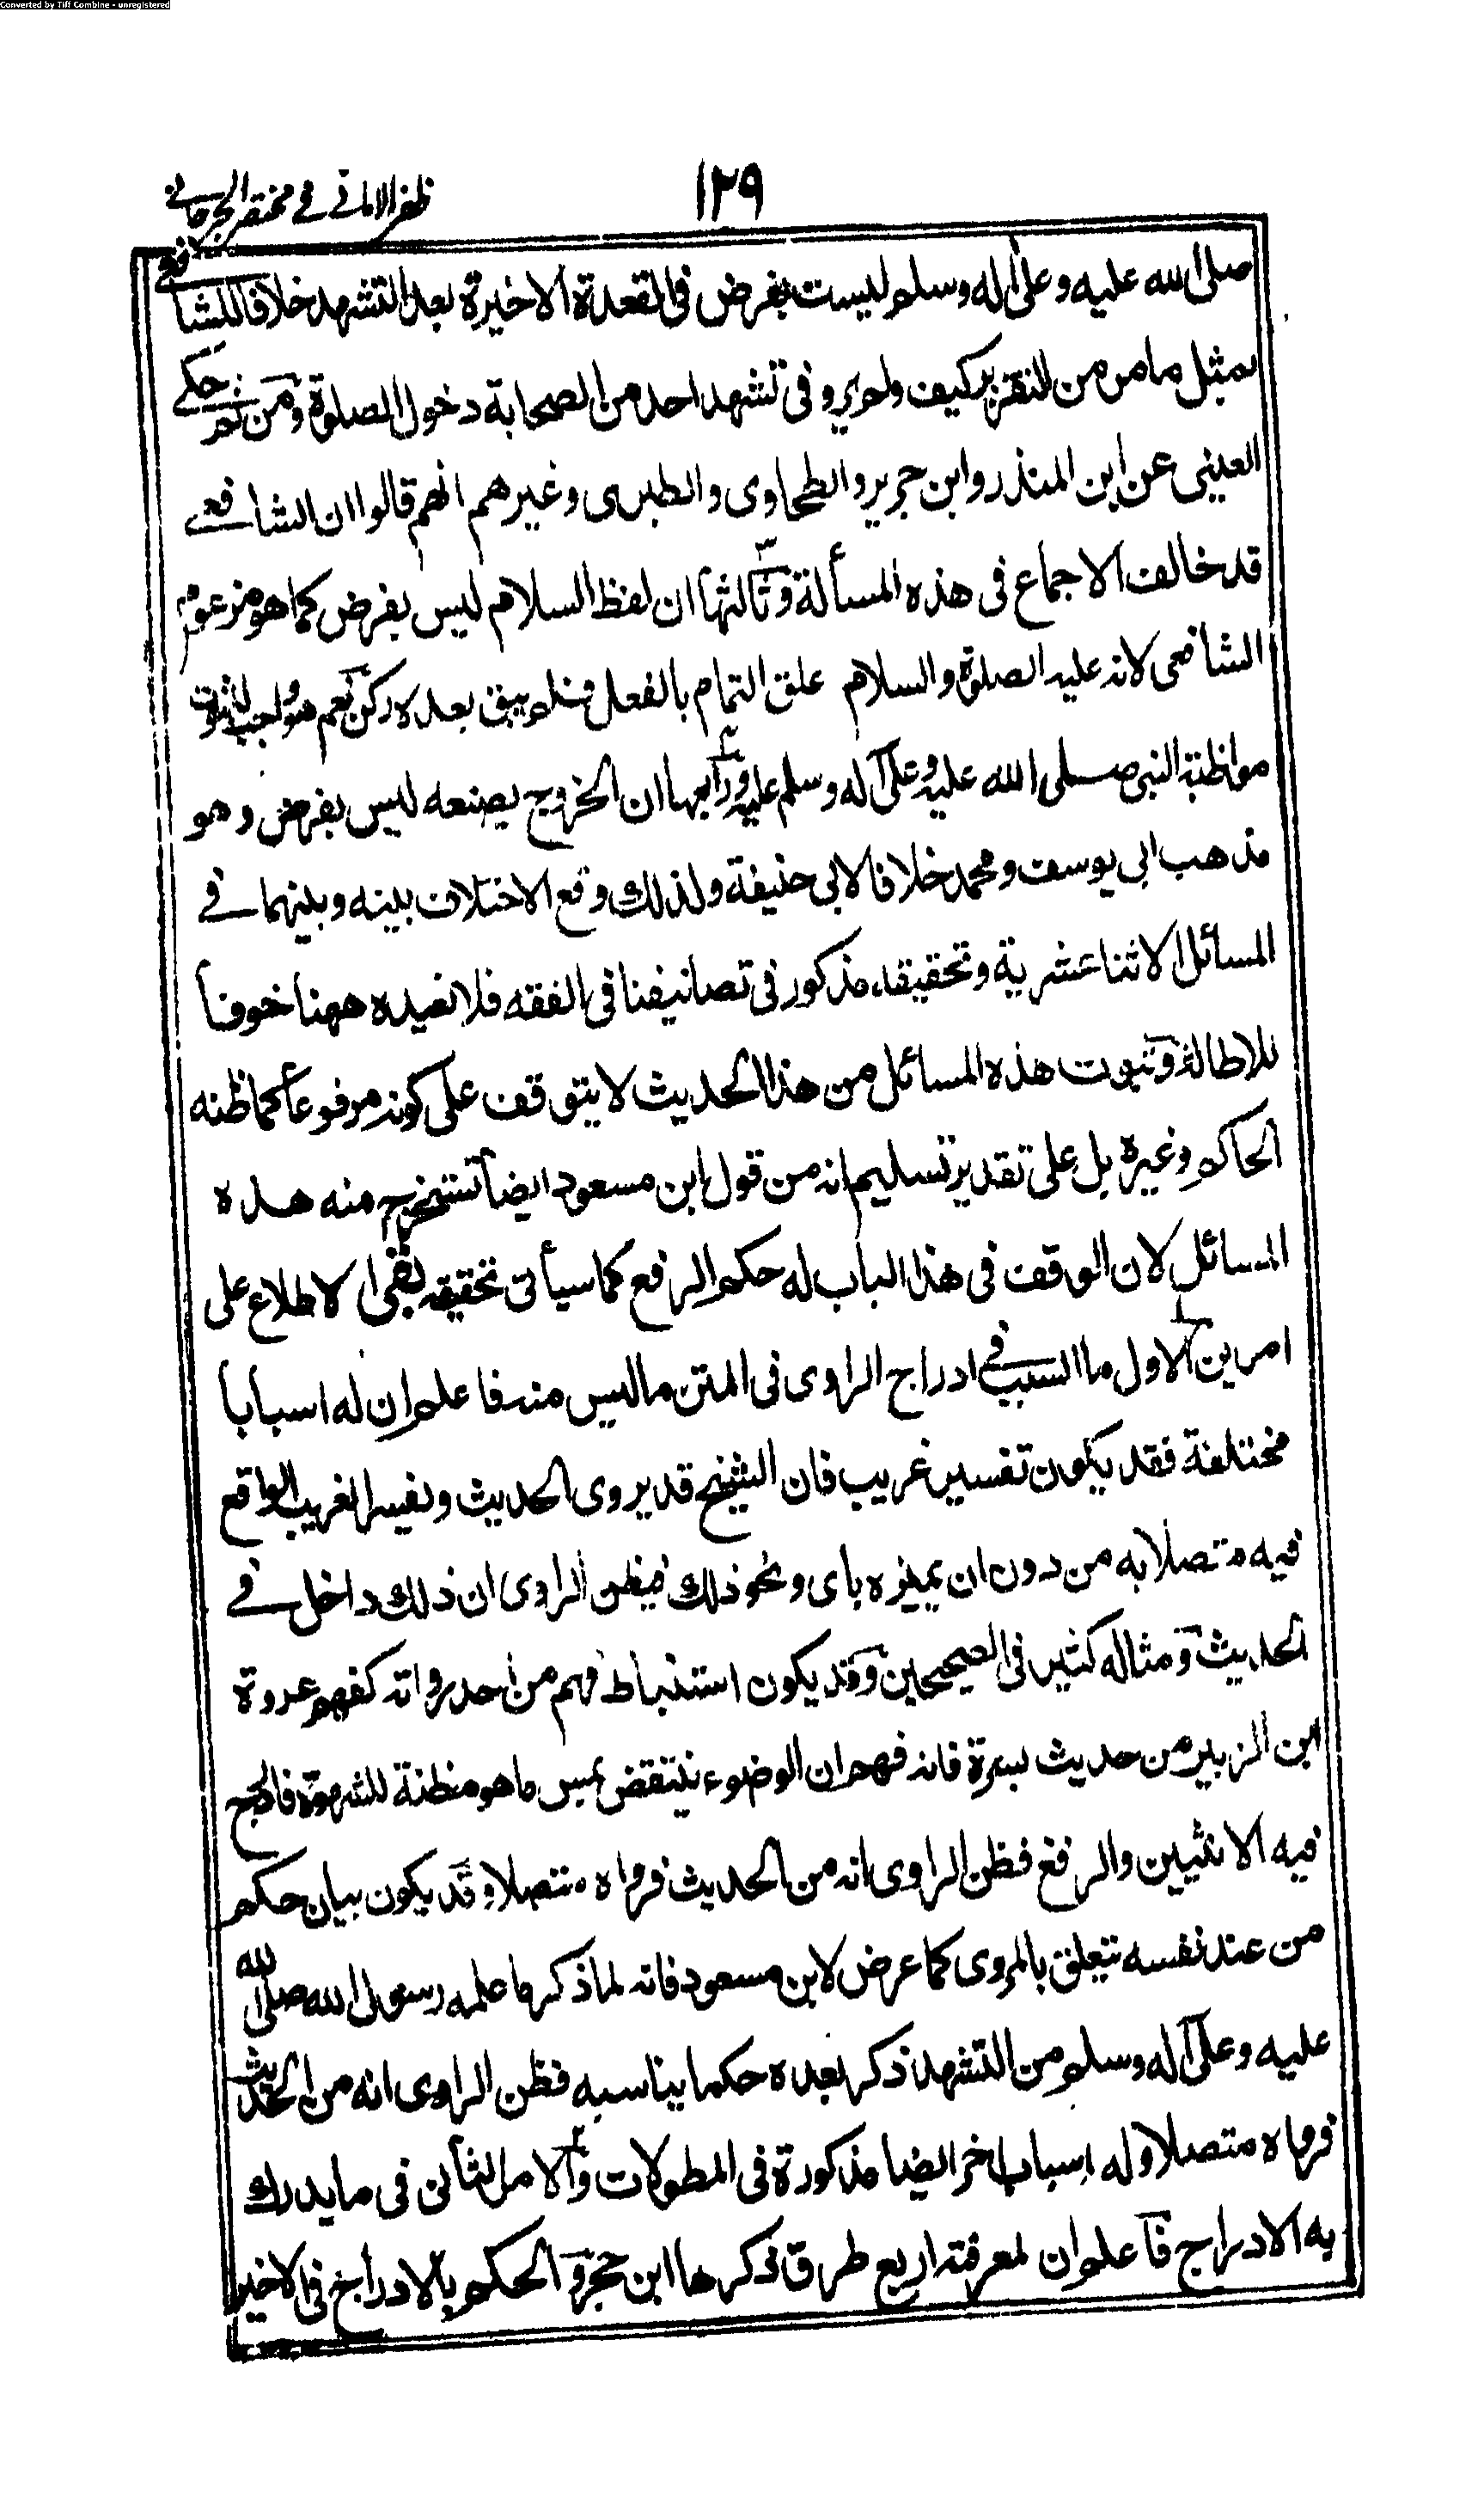 Converted by Tiff Combine - unregistered
ظفر الامانى فى مختصر الجرجانى
١٢٩
صلى الله عليه وعلى آله وسلم ليست بفرض فى القعدة الاخيرة بعد التشهد خلافا للشافعى
بمثل ما مر من التقرير كيف ولم يرو فى تشهد احد من الصحابة دخول الصلوة ومن ثم حكى
العينى عن ابن المنذر وابن جرير والطحاوى والطبرى وغيرهم انهم قالوا ان الشافعى
قد خالف الاجماع فى هذه المسألة وثالثها ان لفظ السلام ليس بفرض كما هو مزعوم
الشافعى لانه عليه الصلوة والسلام علق التمام بالفعل فلم يبق بعده ركن نعم هو واجب لثبوت
مواظبة النبى صلى الله عليه وعلى آله وسلم عليه ورابعها ان الخروج بصنعه ليس بفرض وهو
مذهب ابى يوسف ومحمد خلافا لابى حنيفة ولذلك وقع الاختلاف بينه وبينهما فى
المسائل الاثنا عشرية وتحقيقه مذكور فى تصانيفنا فى الفقه فلا نعيده ههنا خوفا
للاطالة وثبوت هذه المسائل من هذا الحديث لا يتوقف على كونه مرفوعا كما ظنه
الحاكم وغيره بل على تقدير تسليم انه من قول ابن مسعود ايضا تستخرج منه هذه
المسائل لان الوقف فى هذا الباب له حكم الرفع كما سيأتى تحقيقه بقى الاطلاع على
امرين الاول ما السبب فى ادراج الراوى فى المتن ما ليس منه فاعلم ان له اسبابا
مختلفة فقد يكون تفسير غريب فان الشيخ قد يروى الحديث ويفسر الغريب الواقع
فيه متصلا به من دون ان يميزه باى ونحو ذلك فيظن الراوى ان ذلك داخل فى
الحديث ومثاله كثير فى الصحيحين وقد يكون استنباط فهم من احد رواته كفهم عروة
ابن الزبير من حديث بسرة فانه فهم ان الوضوء ينتقض بمس ما هو مظنة للشهوة فادرج
فيه الانثيين والرفغ فظن الراوى انه من الحديث فرواه متصلا وقد يكون بيان حكم
من عند نفسه يتعلق بالمروى كما عرض لابن مسعود فانه لما ذكر ما علمه رسول الله صلى الله
عليه وعلى آله وسلم من التشهد ذكر بعده حكما يناسبه فظن الراوى انه من الحديث
فرواه متصلا وله اسباب اخر ايضا مذكورة فى المطولات والامر الثانى فى ما يدرك
به الادراج فاعلم ان لمعرفته اربع طرق ذكرها ابن حجر والحكم بالادراج فى الاخير